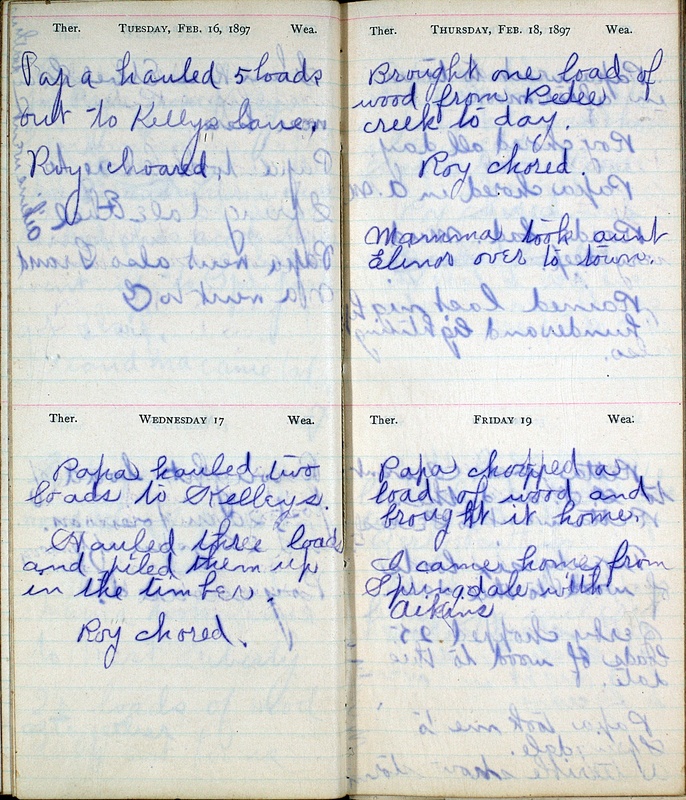 Ther. TUESDAY, FEB. 16, 1897 Wea.
Papa hauled 5 loads
out to Kellys lane.
Roy choared
Ther. WEDNESDAY 17 Wea.
Papa hauled two
loads to Kelleys.
Hauled three loads
and piled them up
in the timber.
Roy chored.
Ther. THURSDAY, FEB. 18, 1897 Wea.
Brought one load of
wood from Pedee
creek to day.
Roy chored.
Mamma took aunt
Elinor over to town.
Ther. FRIDAY 19 Wea.
Papa chopped a
load of wood and
brought it home.
I came home from
Springdale with
Aikins